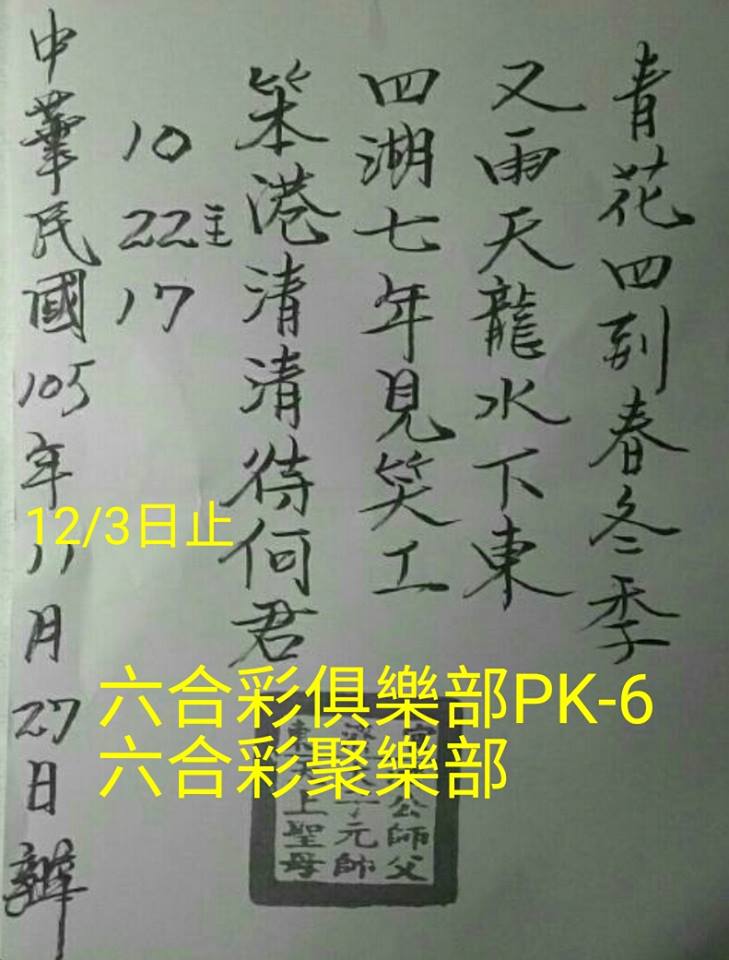 青花四到春冬季
又雨天龍水下東
四湖七年見笑工
笨港清清待何君
10
22主
17
中華民國105年11月27日辦
12/3日止
六合彩俱樂部PK-6
六合彩聚樂部
公師父
元帥
上聖母